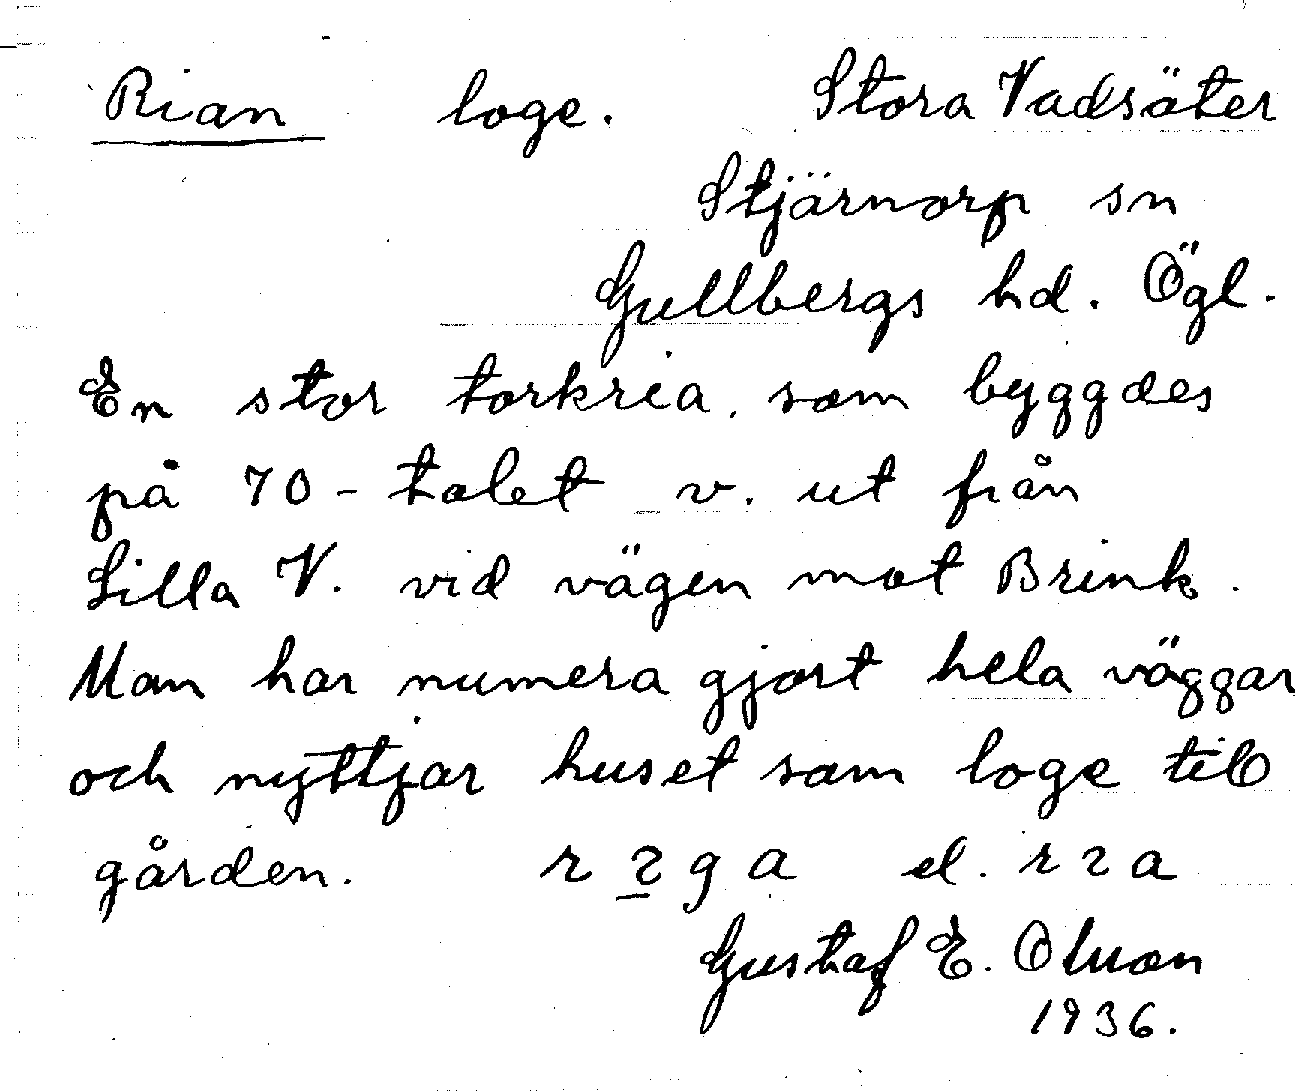 Rian loge. Stora Vadsäter
Stjärnorp sn
Gullbergs hd. Ögl.
En stor torkria, som byggdes
på 70-talet v. ut från
Lilla V. vid vägen mot Brink.
Man har numera gjort hela väggar
och nyttjar huset som loge till
gården. el.
Gustaf E. Olson
1936.